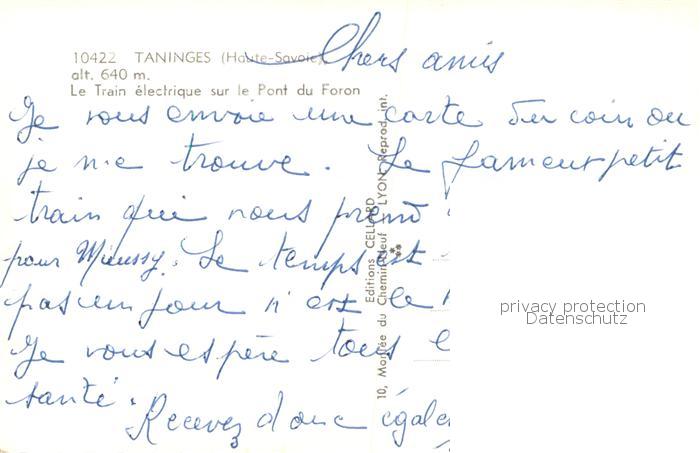 10422 TANINGES (Haute-Savoie)
alt. 640 m.
Le Train électrique sur le Pont du Foron
Chers amis
Je vous envoie une carte du coin ou
je me trouve. Le fameux petit
train qui nous prend
pour Mieussy. Le temps est
pas un jour n'est le
Je vous espère tous
santé.
Recevez donc égale
Editions CELLARD
10, Montée du Chemin Neuf LYON Reprod. int.
privacy protection
Datenschutz